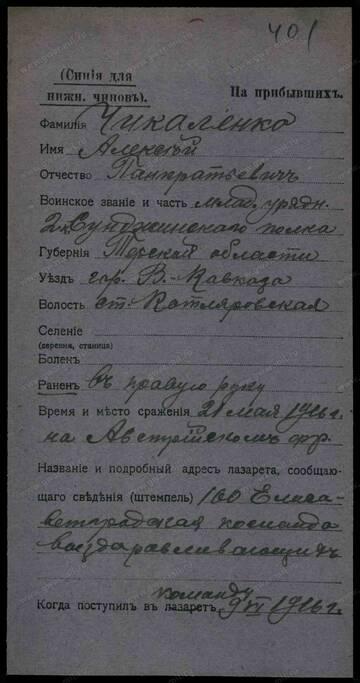 401
(Синія для
нижн. чиновъ).
На прибывшихъ.
Фамилія Чикаленко
Имя Алексѣй
Отчество Панкратьевичъ
Воинское званіе и часть млад. урядн.
2 Сунджинского полка
Губернія Терской области
Уѣздъ гор. В.-Кавказа
Волость ст. Котляровская
Селеніе
(деревня, станица)
Боленъ
Раненъ въ правую руку
Время и мѣсто сраженія 21 мая 1916 г.
на Австрійскомъ фр.
Названіе и подробный адресъ лазарета, сообщаю-
щаго свѣдѣнія (штемпель) 160 Елиса-
ветградская команда
выздоравливающихъ
команду
Когда поступилъ въ лазаретъ 9 VI 1916 г.